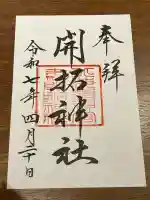 奉拝
開拓神社
令和七年四月二十日